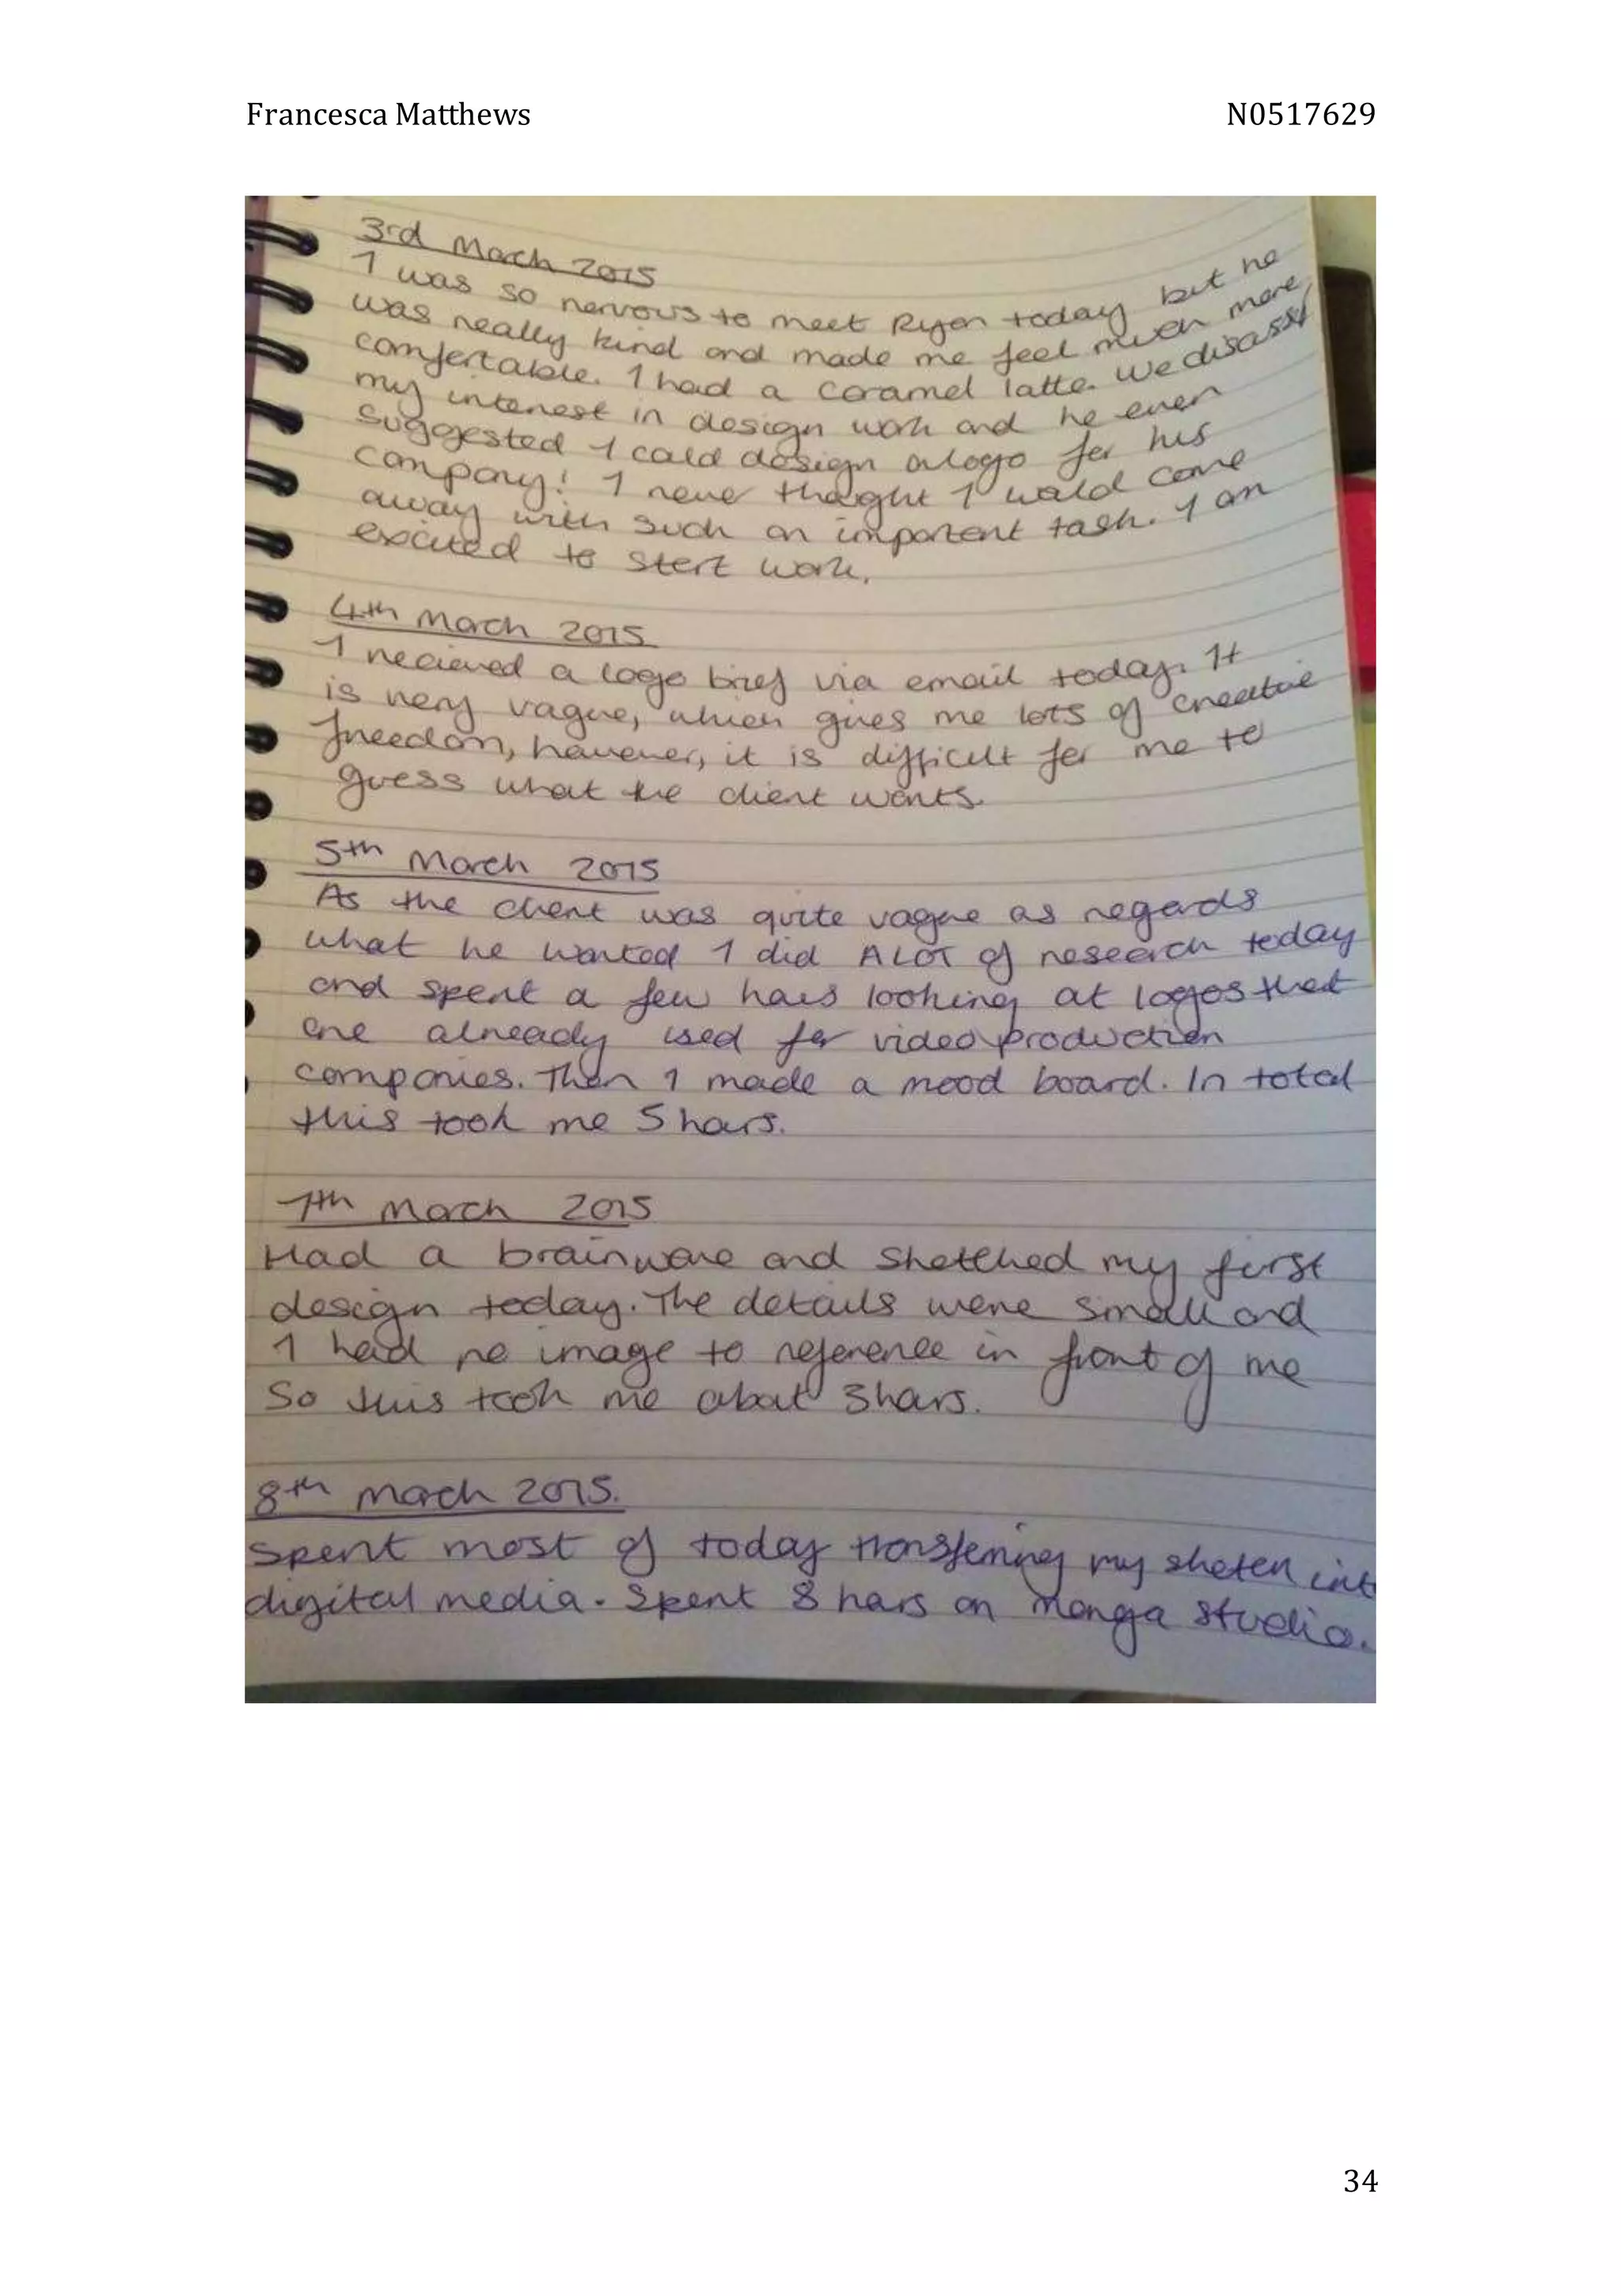 Francesca Matthews N0517629
3rd March 2015
I was so nervous to meet Ryan today but he
was really kind and made me feel much more
comfortable. I had a caramel latte. We discussed
my interest in design work and he even
suggested I could design a logo for his
company! I never thought I would come
away with such an important task. I am
excited to start work.
4th March 2015
I recieved a logo brief via email today. It
is very vague, which gives me lots of creative
freedom, however, it is difficult for me to
guess what the client wants.
5th March 2015
As the client was quite vague as regards
what he wanted I did A LOT of research today
and spent a few hours looking at logos that
are already used for video production
companies. Then I made a mood board. In total
this took me 5 hours.
7th March 2015
Had a brainwave and sketched my first
design today. The details were small and
I had no image to reference in front of me
So this took me about 3 hours.
8th March 2015.
Spent most of today transferring my sketch int
digital media. Spent 8 hours on Manga Studio.
34